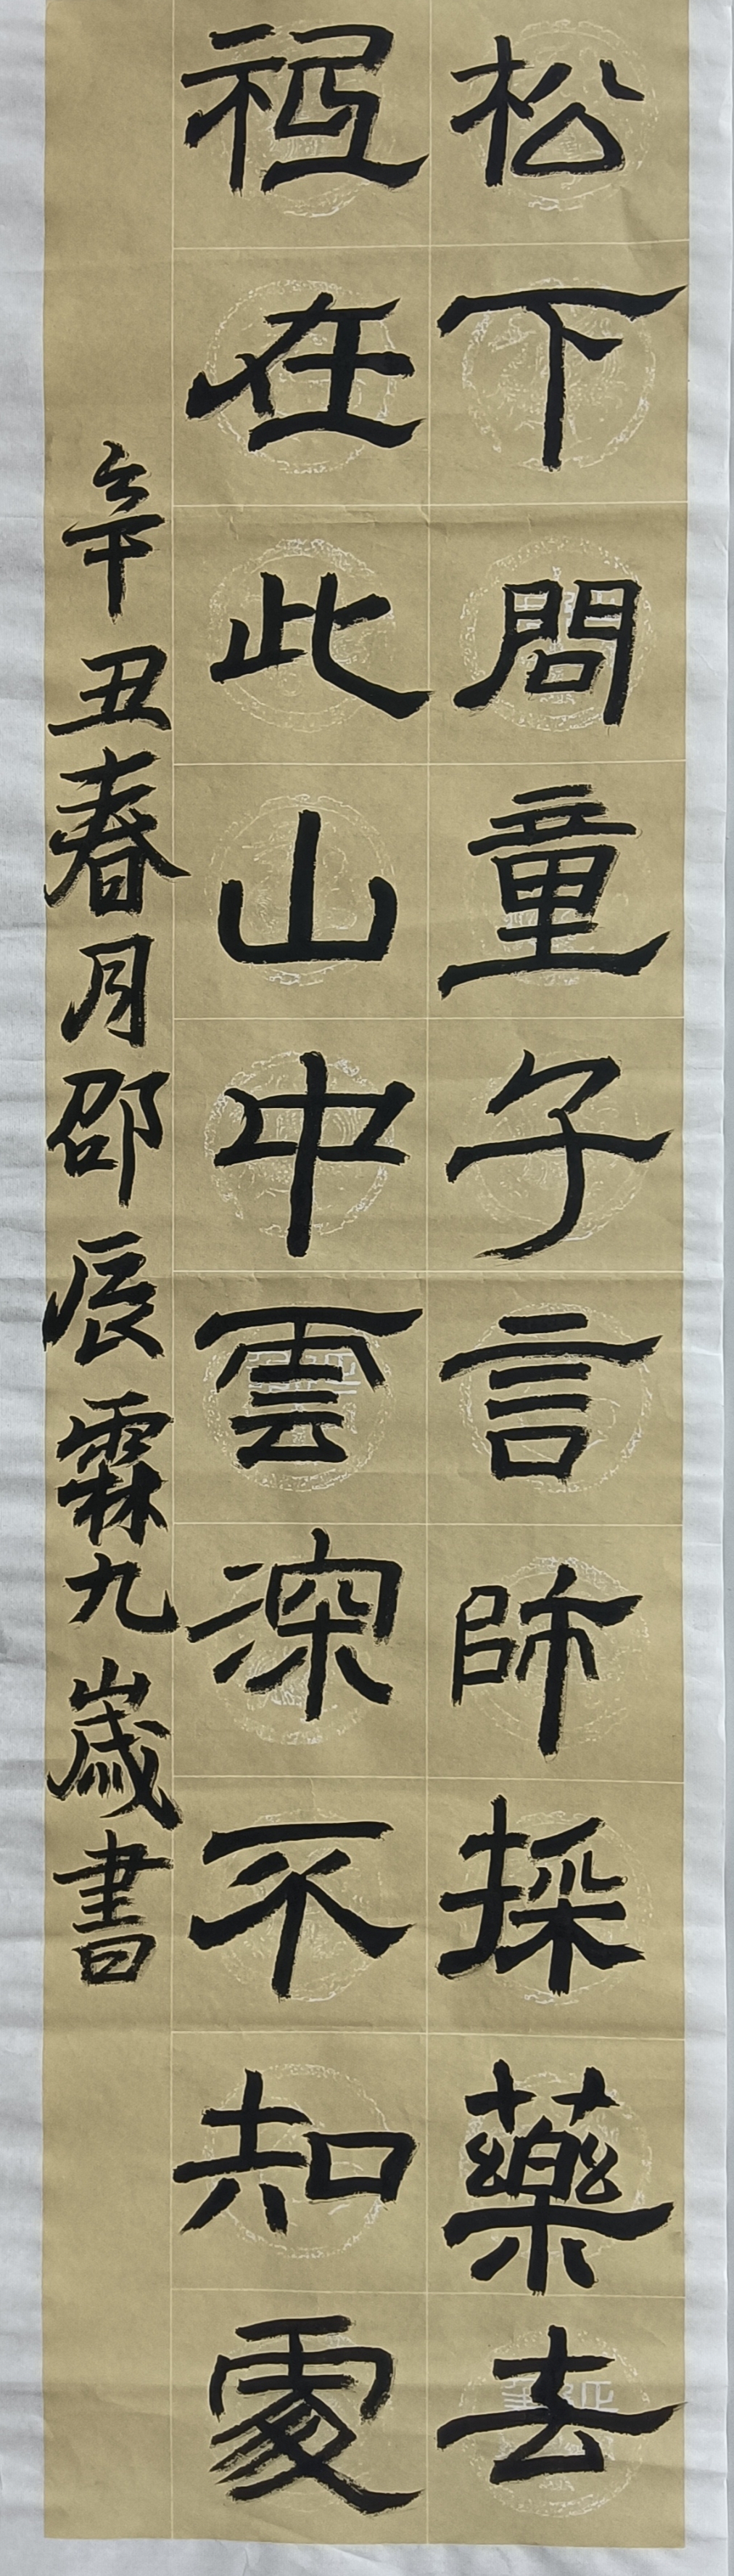 松下問童子言師採藥去
祇在此山中雲深不知處
辛丑春月邵辰霖九歲書